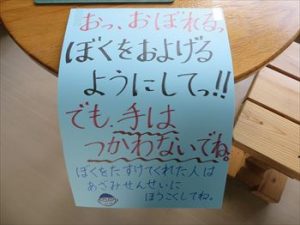 おっ、おぼれるっ
ぼくをおよげる
ようにしてっ!!
でも、手は
つかわないでね。
ぼくをたすけてくれた人は
あざみせんせいに
ほうこくしてね。